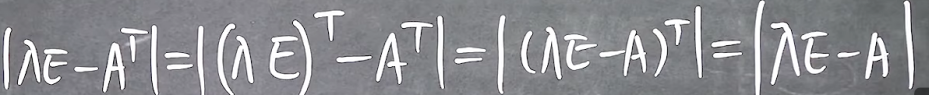 |λE-Aᵀ|=|(λE)ᵀ-Aᵀ|=|(λE-A)ᵀ|=|λE-A|